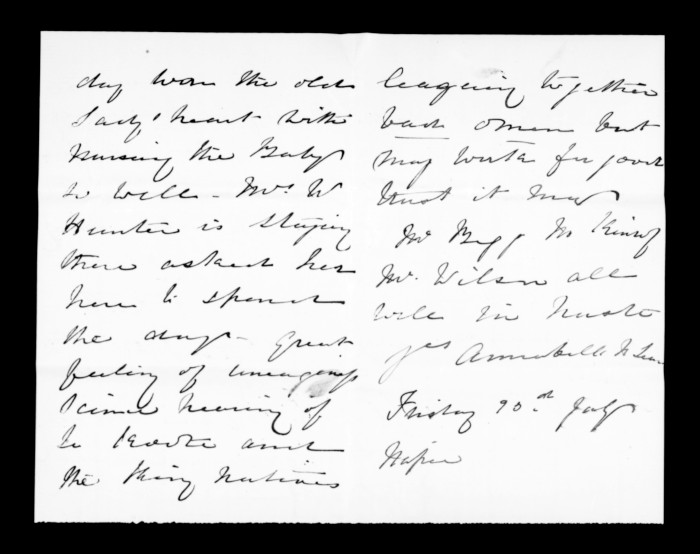 day won the old
Lady's heart with
nursing the Baby
so well - Mrs W
Hunter is staying
there asked her
here to spend
the day - Great
feeling of uneasiness
since hearing of
Te Kooti and
the King natives
leaguing together
bad omen but
may work for good
trust it may
Mr Begg
Mr. Wilson all
well in haste
yrs Annabella McLean
Friday July
Napier